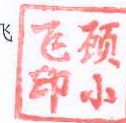 飞
顾小
飞印